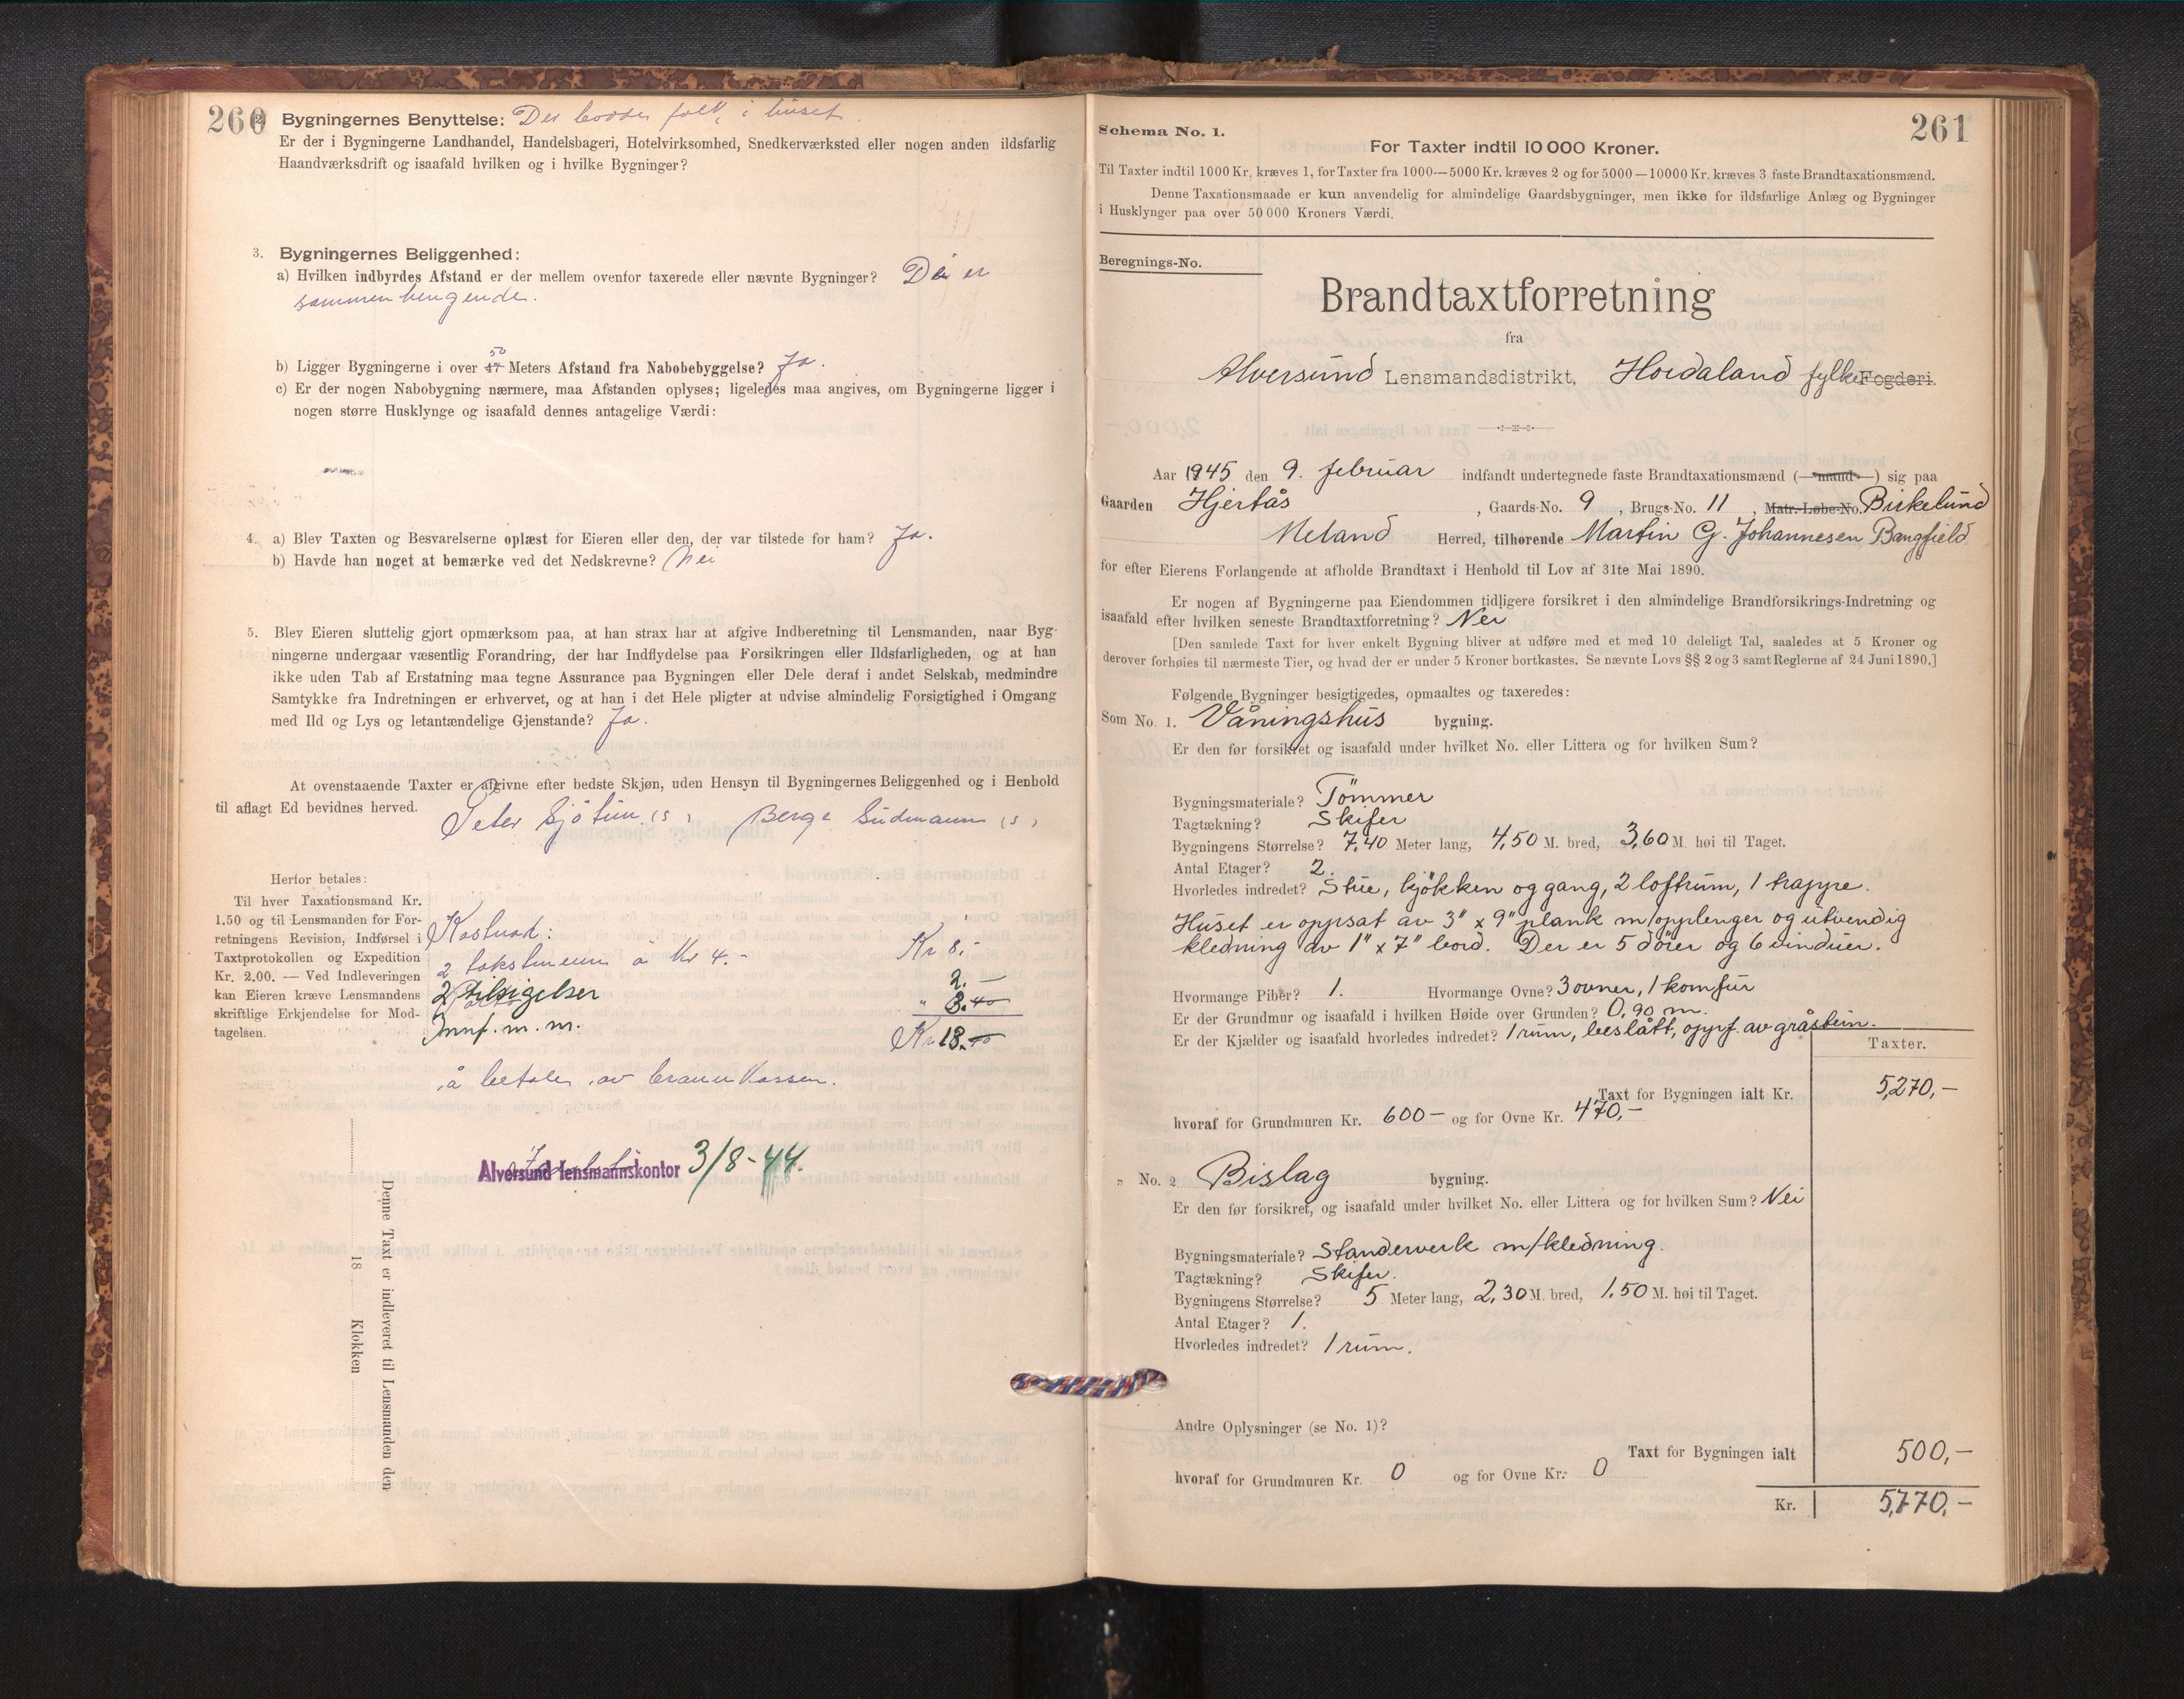 260
2. Bygningernes Benyttelse: Der bodde folk i huset.
Er der i Bygningerne Landhandel, Handelsbageri, Hotelvirksomhed, Snedkerværksted eller nogen anden ildsfarlig
Haandværksdrift og isaafald hvilken og i hvilke Bygninger?
3. Bygningernes Beliggenhed:
a) Hvilken indbyrdes Afstand er der mellem ovenfor taxerede eller nævnte Bygninger? Dei er
sammenhengende.
50
b) Ligger Bygningerne i over Meters Afstand fra Nabobebyggelse? Ja.
c) Er der nogen Nabobygning nærmere, maa Afstanden oplyses; ligeledes maa angives, om Bygningerne ligger i
nogen større Husklynge og isaafald dennes antagelige Værdi:
4. a) Blev Taxten og Besvarelserne oplæst for Eieren eller den, der var tilstede for ham? Ja.
b) Havde han noget at bemærke ved det Nedskrevne? Nei
5. Blev Eieren sluttelig gjort opmærksom paa, at han strax har at afgive Indberetning til Lensmanden, naar Byg-
ningerne undergaar væsentlig Forandring, der har Indflydelse paa Forsikringen eller Ildsfarligheden, og at han
ikke uden Tab af Erstatning maa tegne Assurance paa Bygningen eller Dele deraf i andet Selskab, medmindre
Samtykke fra Indretningen er erhvervet, og at han i det Hele pligter at udvise almindelig Forsigtighed i Omgang
med Ild og Lys og letantændelige Gjenstande? Ja.
At ovenstaaende Taxter er afgivne efter bedste Skjøn, uden Hensyn til Bygningernes Beliggenhed og i Henhold
til aflagt Ed bevidnes herved.
Peter Sjötun (s) Berge Sudmann (s)
Herfor betales:
Til hver Taxationsmand Kr.
1.50 og til Lensmanden for For-
retningens Revision, Indførsel i
Taxtprotokollen og Expedition
Kr. 2.00. — Ved Indleveringen
kan Eieren kræve Lensmandens
skriftlige Erkjendelse for Mod-
tagelsen.
Kostnad:
2 takstmenn à Kr 4.- Kr 8.
2 tilsigelser 2.-
Innf. m. m. " 3.40
Kr 13.40
å betales av brannkassen.
Alversund lensmannskontor 3/8-44.
Denne Taxt er indleveret til Lensmanden den
18 Klokken
261
Schema No. 1.
For Taxter indtil 10 000 Kroner.
Til Taxter indtil 1000 Kr. kræves 1, for Taxter fra 1000—5000 Kr. kræves 2 og for 5000—10000 Kr. kræves 3 faste Brandtaxationsmænd.
Denne Taxationsmaade er kun anvendelig for almindelige Gaardsbygninger, men ikke for ildsfarlige Anlæg og Bygninger
i Husklynger paa over 50 000 Kroners Værdi.
Beregnings-No.
Brandtaxtforretning
fra
Alversund Lensmandsdistrikt, Hordaland fylke Fogderi.
Aar 1945 den 9. februar indfandt undertegnede faste Brandtaxationsmænd (—mand—) sig paa
Gaarden Hjertås, Gaards-No. 9, Brugs-No. 11, Matr.-Løbe-No. Birkelund
Meland Herred, tilhørende Martin G. Johannesen Bangfield
for efter Eierens Forlangende at afholde Brandtaxt i Henhold til Lov af 31te Mai 1890.
Er nogen af Bygningerne paa Eiendommen tidligere forsikret i den almindelige Brandforsikrings-Indretning og
isaafald efter hvilken seneste Brandtaxtforretning? Nei
[Den samlede Taxt for hver enkelt Bygning bliver at udføre med et med 10 deleligt Tal, saaledes at 5 Kroner og
derover forhøies til nærmeste Tier, og hvad der er under 5 Kroner bortkastes. Se nævnte Lovs §§ 2 og 3 samt Reglerne af 24 Juni 1890.]
Følgende Bygninger besigtigedes, opmaaltes og taxeredes:
Som No. 1. Våningshus bygning.
Er den før forsikret og isaafald under hvilket No. eller Littera og for hvilken Sum?
Bygningsmateriale? Tömmer
Tagtækning? Skifer
Bygningens Størrelse? 7,40 Meter lang, 4,50 M. bred, 3,60 M. høi til Taget.
Antal Etager? 2.
Hvorledes indredet? Stue, kjökken og gang, 2 loftrum, 1 trappe.
Huset er oppsat av 3" x 9" plank m/opplenger og utvendig
kledning av 1" x 7" bord. Der er 5 dörer og 6 vinduer.
Hvormange Piber? 1. Hvormange Ovne? 3 ovner, 1 komfur
Er der Grundmur og isaafald i hvilken Høide over Grunden? 0,90 m.
Er der Kjælder og isaafald hvorledes indredet? 1 rum, beslått, oppf. av gråstein.
Taxter.
Taxt for Bygningen ialt Kr. 5,270,-
hvoraf for Grundmuren Kr. 600- og for Ovne Kr. 470,-
" No. 2 Bislag bygning.
Er den før forsikret, og isaafald under hvilket No. eller Littera og for hvilken Sum? Nei
Bygningsmateriale? Standerverk m/kledning.
Tagtækning? Skifer.
Bygningens Størrelse? 5 Meter lang, 2,30 M. bred, 1,50 M. høi til Taget.
Antal Etager? 1.
Hvorledes indredet? 1 rum.
Andre Oplysninger (se No. 1)?
Taxt for Bygningen ialt 500,-
hvoraf for Grundmuren Kr. 0 og for Ovne Kr. 0
Kr. 5,770,-